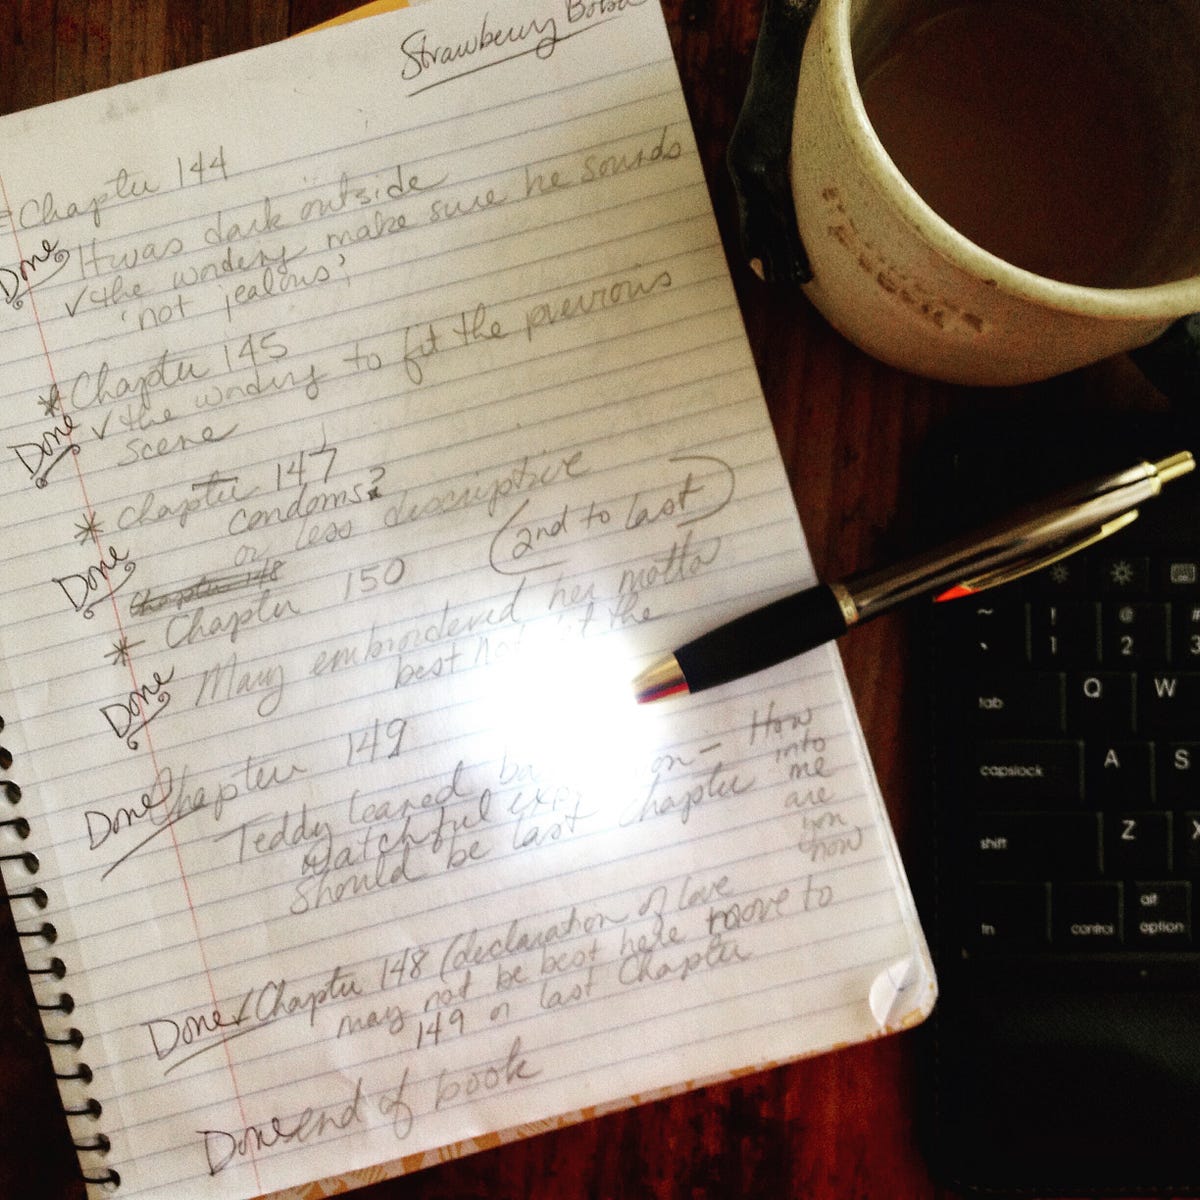 Strawberry
Chapter 144
Done It was dark outside
✓ the wording make sure he sounds
'not jealous'
* Chapter 145
Done ✓ the wording to fit the previous
scene
* Chapter 147
Done condoms?
or less descriptive
Chapter 148
* Chapter 150 (2nd to last)
Done Mary embroidered her motto
best not the
Done Chapter 149
Teddy leaned — How
Watchful into
Should be last chapter me
are
you
now
Done ✓ Chapter 148 (declaration of love
may not be best here move to
149 or last Chapter
Done end of book
~ ! @
\` 1 2 3
tab Q W
capslock A S
shift Z X
fn control alt
option